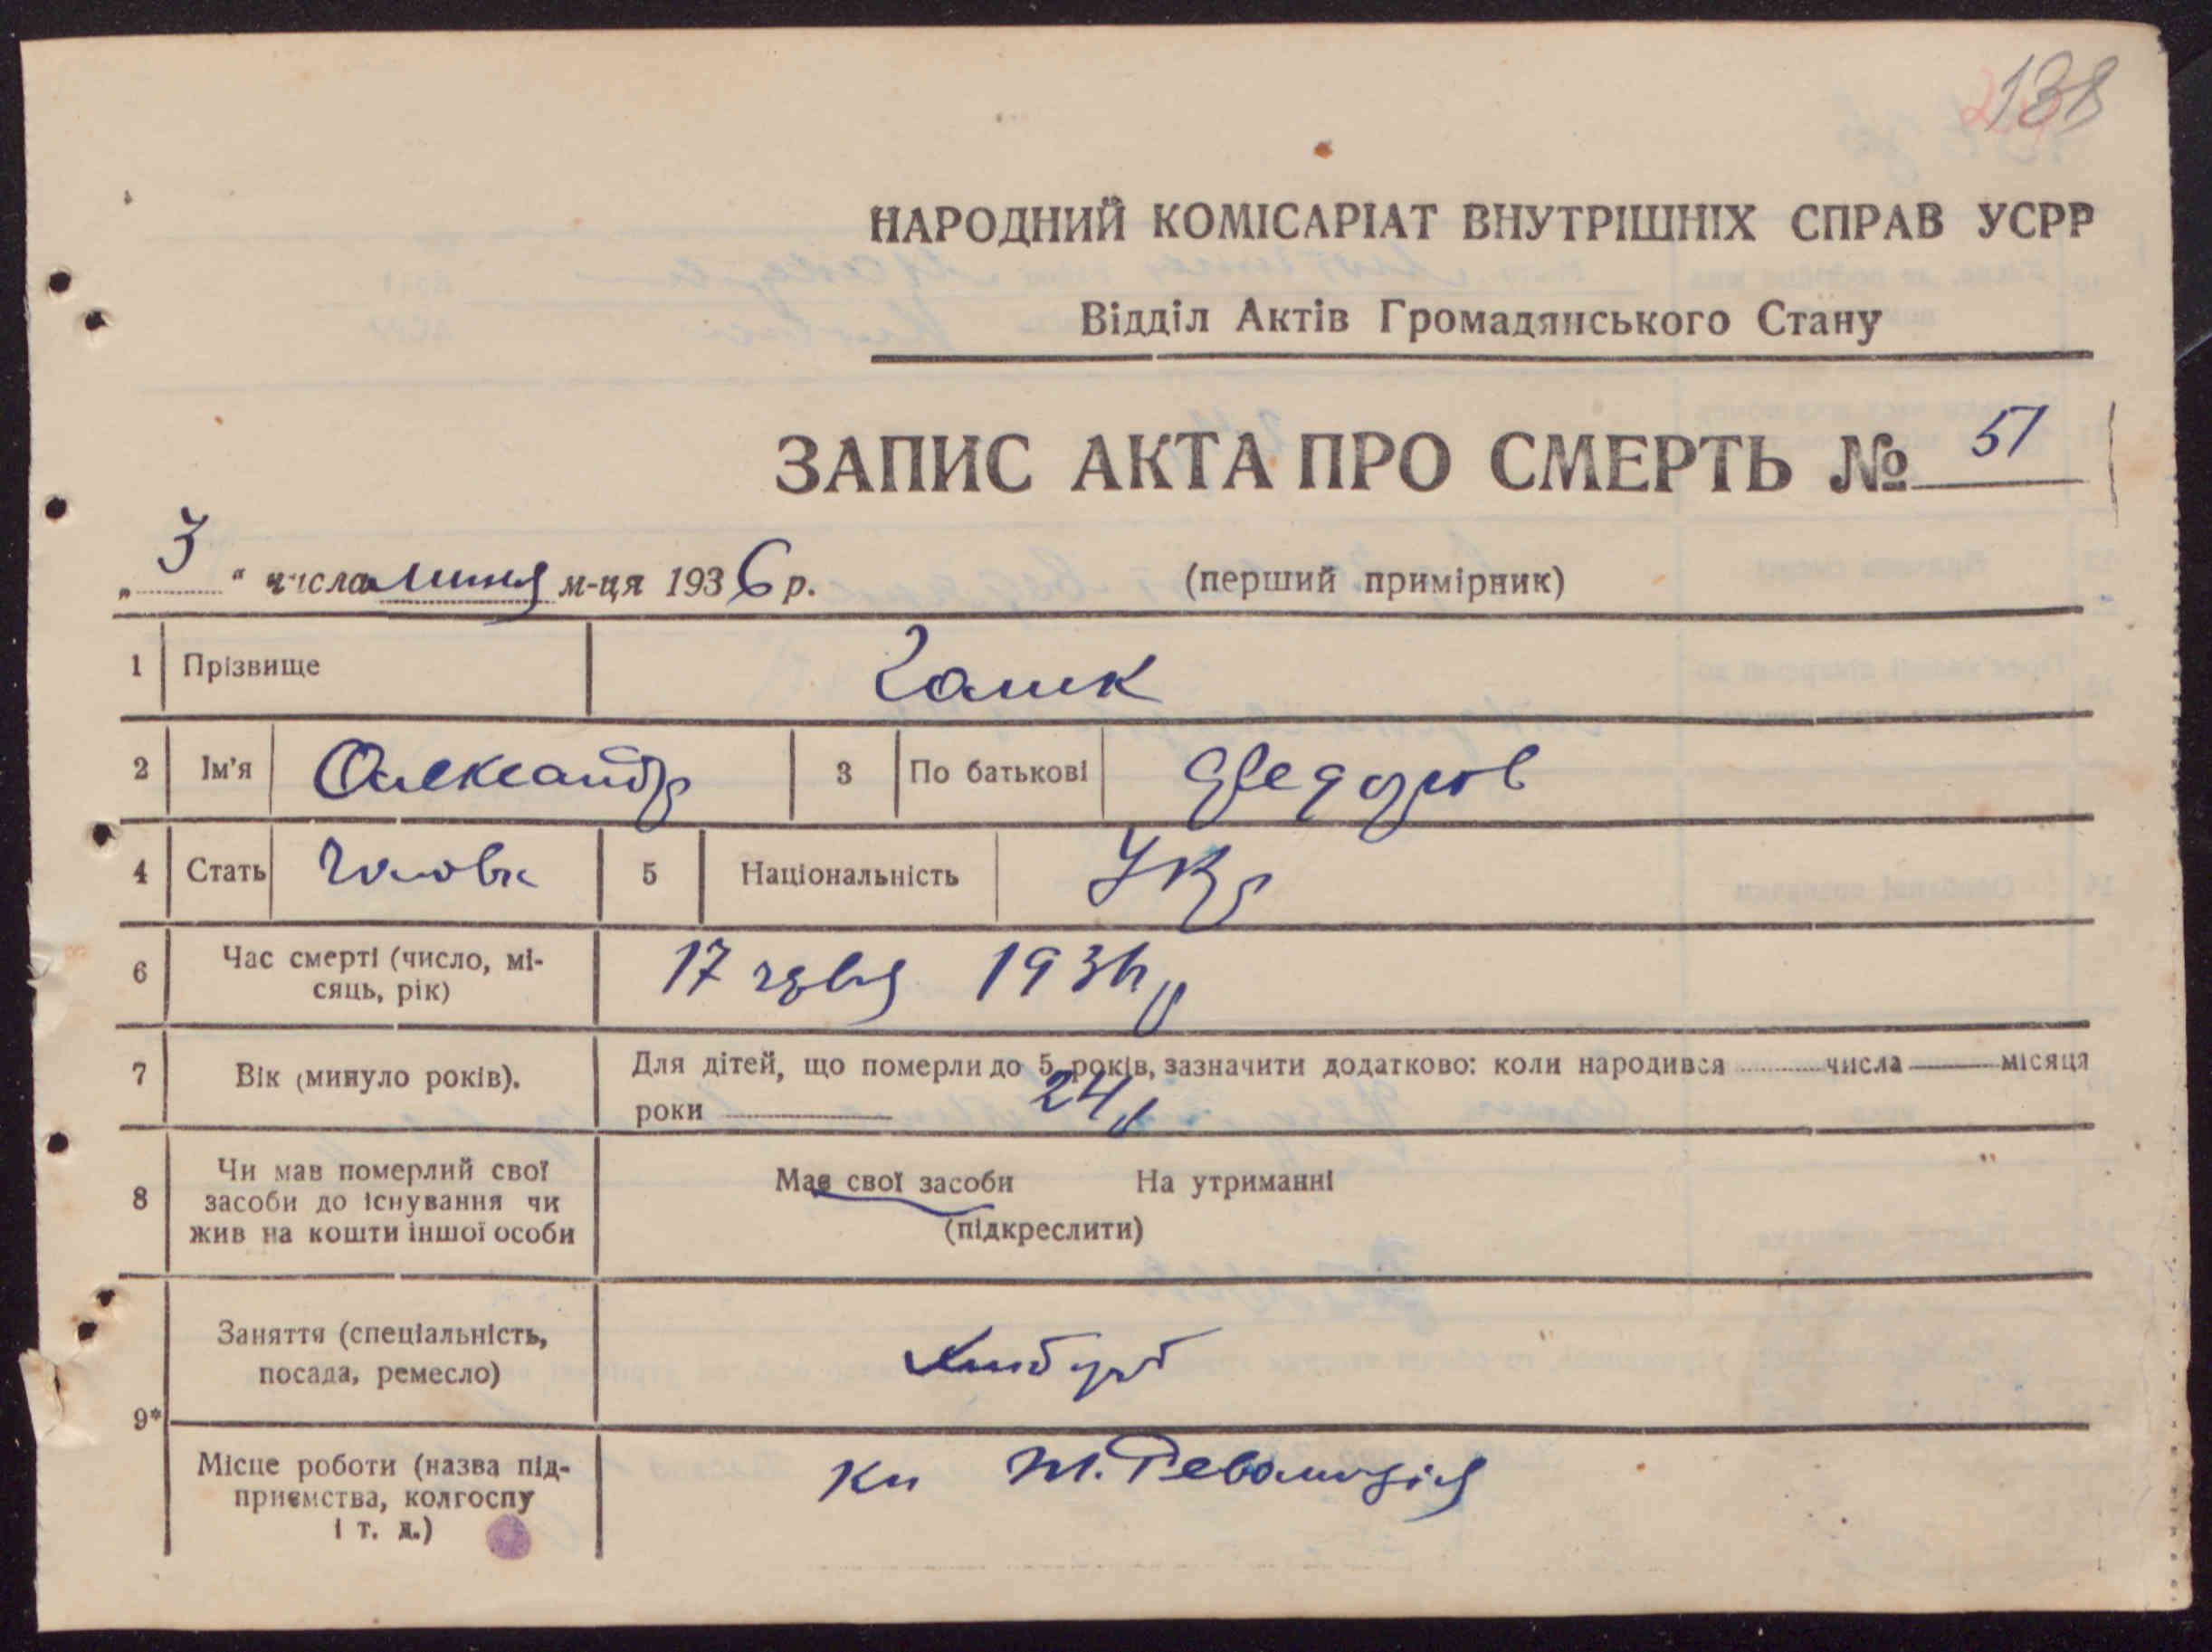 138
НАРОДНИЙ КОМІСАРІАТ ВНУТРІШНІХ СПРАВ УСРР
Відділ Актів Громадянського Стану
ЗАПИС АКТА ПРО СМЕРТЬ № 51
„ 3 “ числа липня м-ця 1936 р. (перший примірник)
1 Прізвище
2 Ім'я Олександр 3 По батькові Федоров
4 Стать Чолов 5 Національність Укр
6 Час смерті (число, мі-
сяць, рік) 17 червня 1936 р
7 Вік (минуло років). Для дітей, що померли до 5 років, зазначити додатково: коли народився числа місяця
роки 24 р
8 Чи мав померлий свої
засоби до існування чи
жив на кошти іншої особи
Має свої засоби На утриманні
(підкреслити)
Заняття (спеціальність,
посада, ремесло) Хлібороб
9*
Місце роботи (назва під-
приємства, колгоспу
і т. д.)
Революція